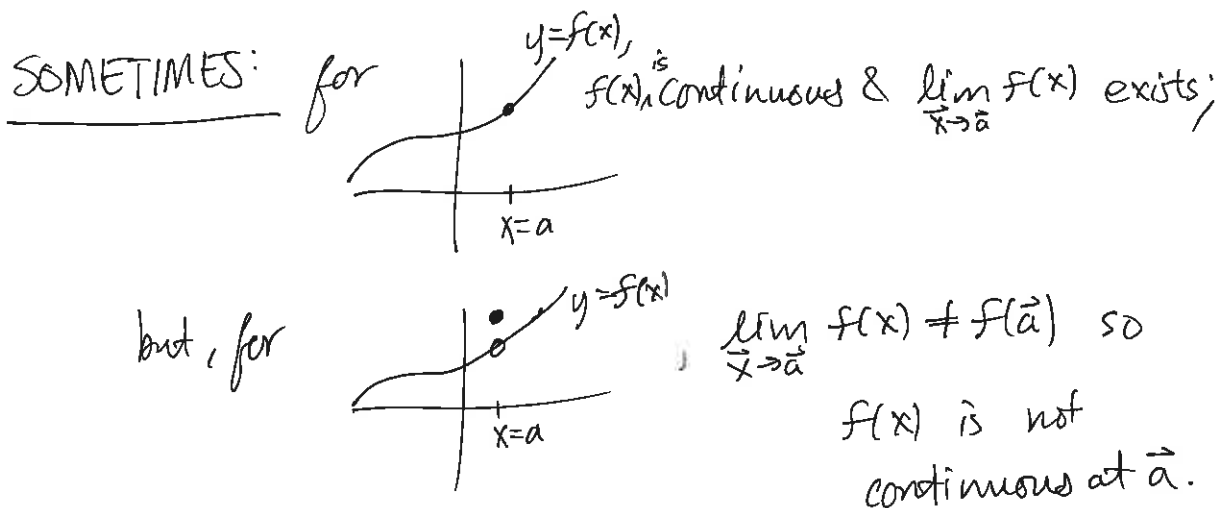 SOMETIMES: for y=f(x), f(x) is continuous & lim f(x) exists;
x⃗→a⃗
x=a
but, for y=f(x), lim f(x) ≠ f(a⃗) so
x⃗→a⃗
x=a
f(x) is not
continuous at a⃗.